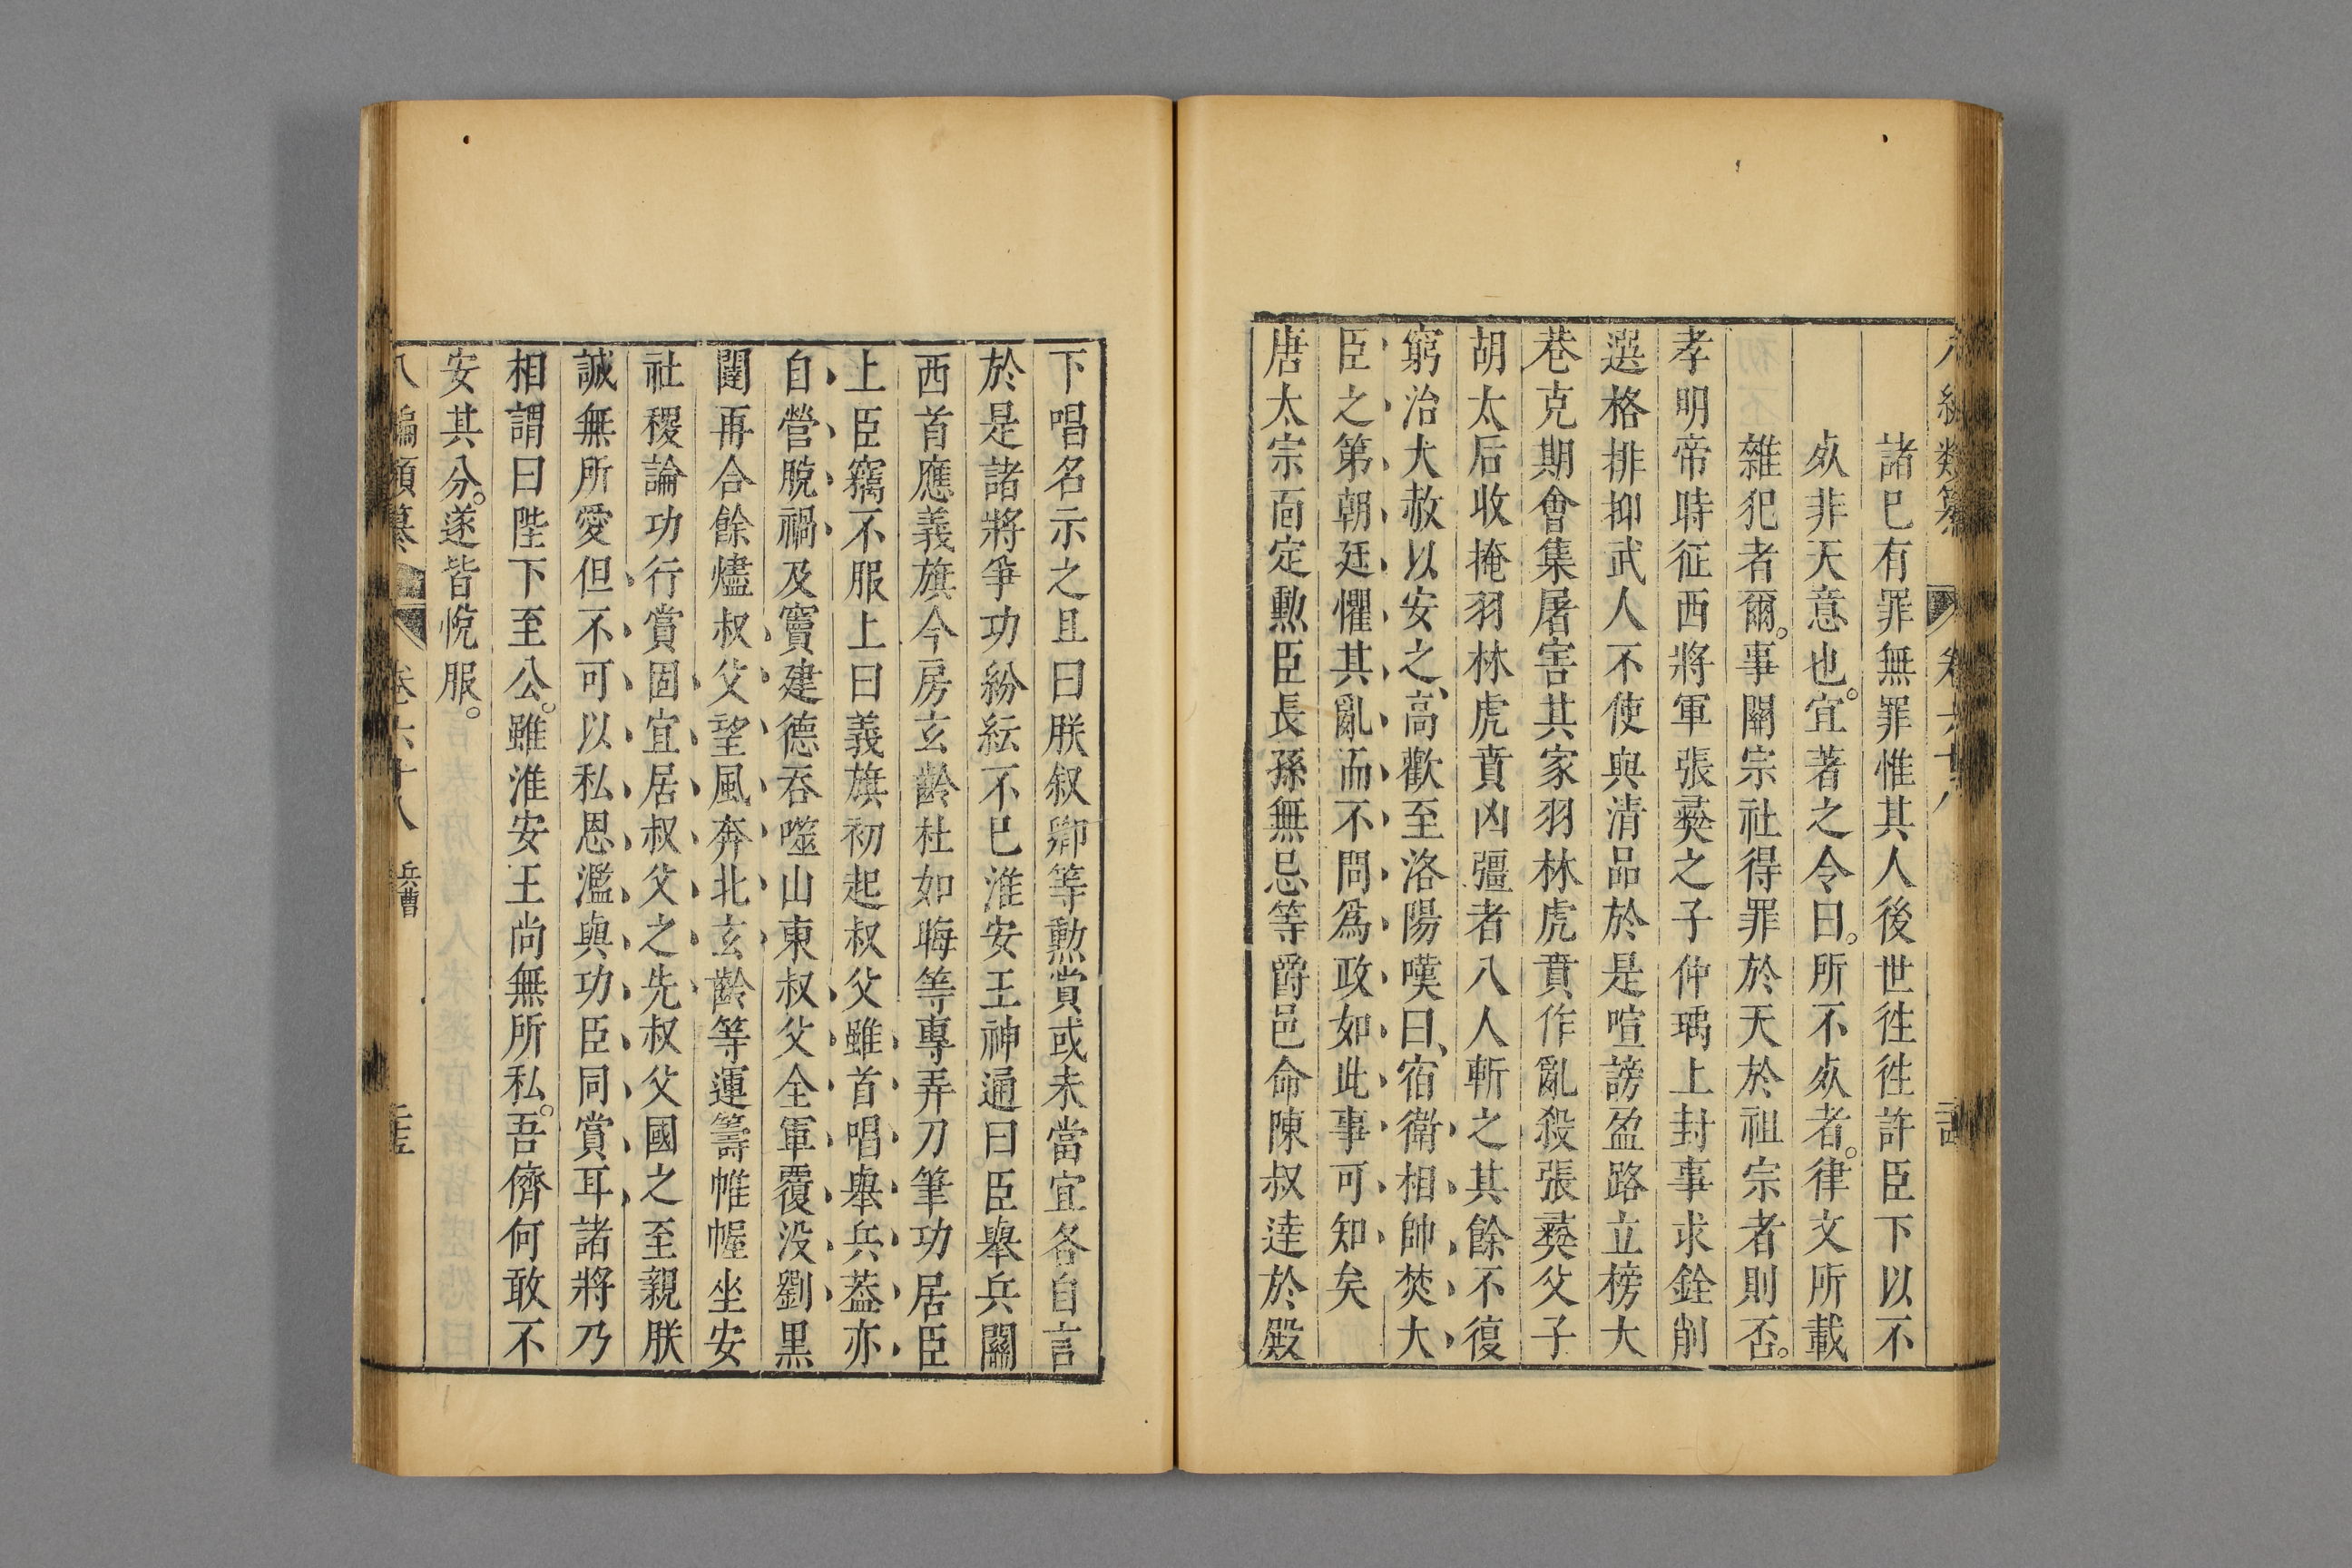 諸已有罪無罪惟其人後世徃徃許臣下以不
㱙非天意也。宜著之令曰。所不㱙者。律文所載
雜犯者爾。事關宗社得罪於天於祖宗者則否。
孝明帝時征西將軍張彛之子仲瑀上封事求銓削
選格排抑武人不使與清品於是喧謗盈路立榜大
巷克期會集屠害其家羽林虎賁作亂殺張彛父子
胡太后收掩羽林虎賁凶彊者八人斬之其餘不復
窮治大赦以安之、高歡至洛陽嘆曰、宿衛相帥焚大
臣之第朝廷懼其亂而不問爲政如此事可知矣
唐太宗面定勲臣長孫無忌等爵邑命陳叔逹於殿
下唱名示之且曰朕叙卿等勲賞或未當宜各自言
於是諸將爭功紛紜不已淮安王神通曰臣舉兵關
西首應義旗今房玄齡杜如晦等專弄刀筆功居臣
上臣竊不服上曰義旗初起叔父雖首唱舉兵葢亦
自營脫禍及竇建德吞噬山東叔父全軍覆没劉黒
闥再合餘燼叔父望風奔北玄齡等運籌帷幄坐安
社稷論功行賞固宜居叔父之先叔父國之至親朕
誠無所愛但不可以私恩濫與功臣同賞耳諸將乃
相謂曰陛下至公。雖淮安王尚無所私。吾儕何敢不
安其分。遂皆悅服。
八編類纂 卷六十八 兵曹